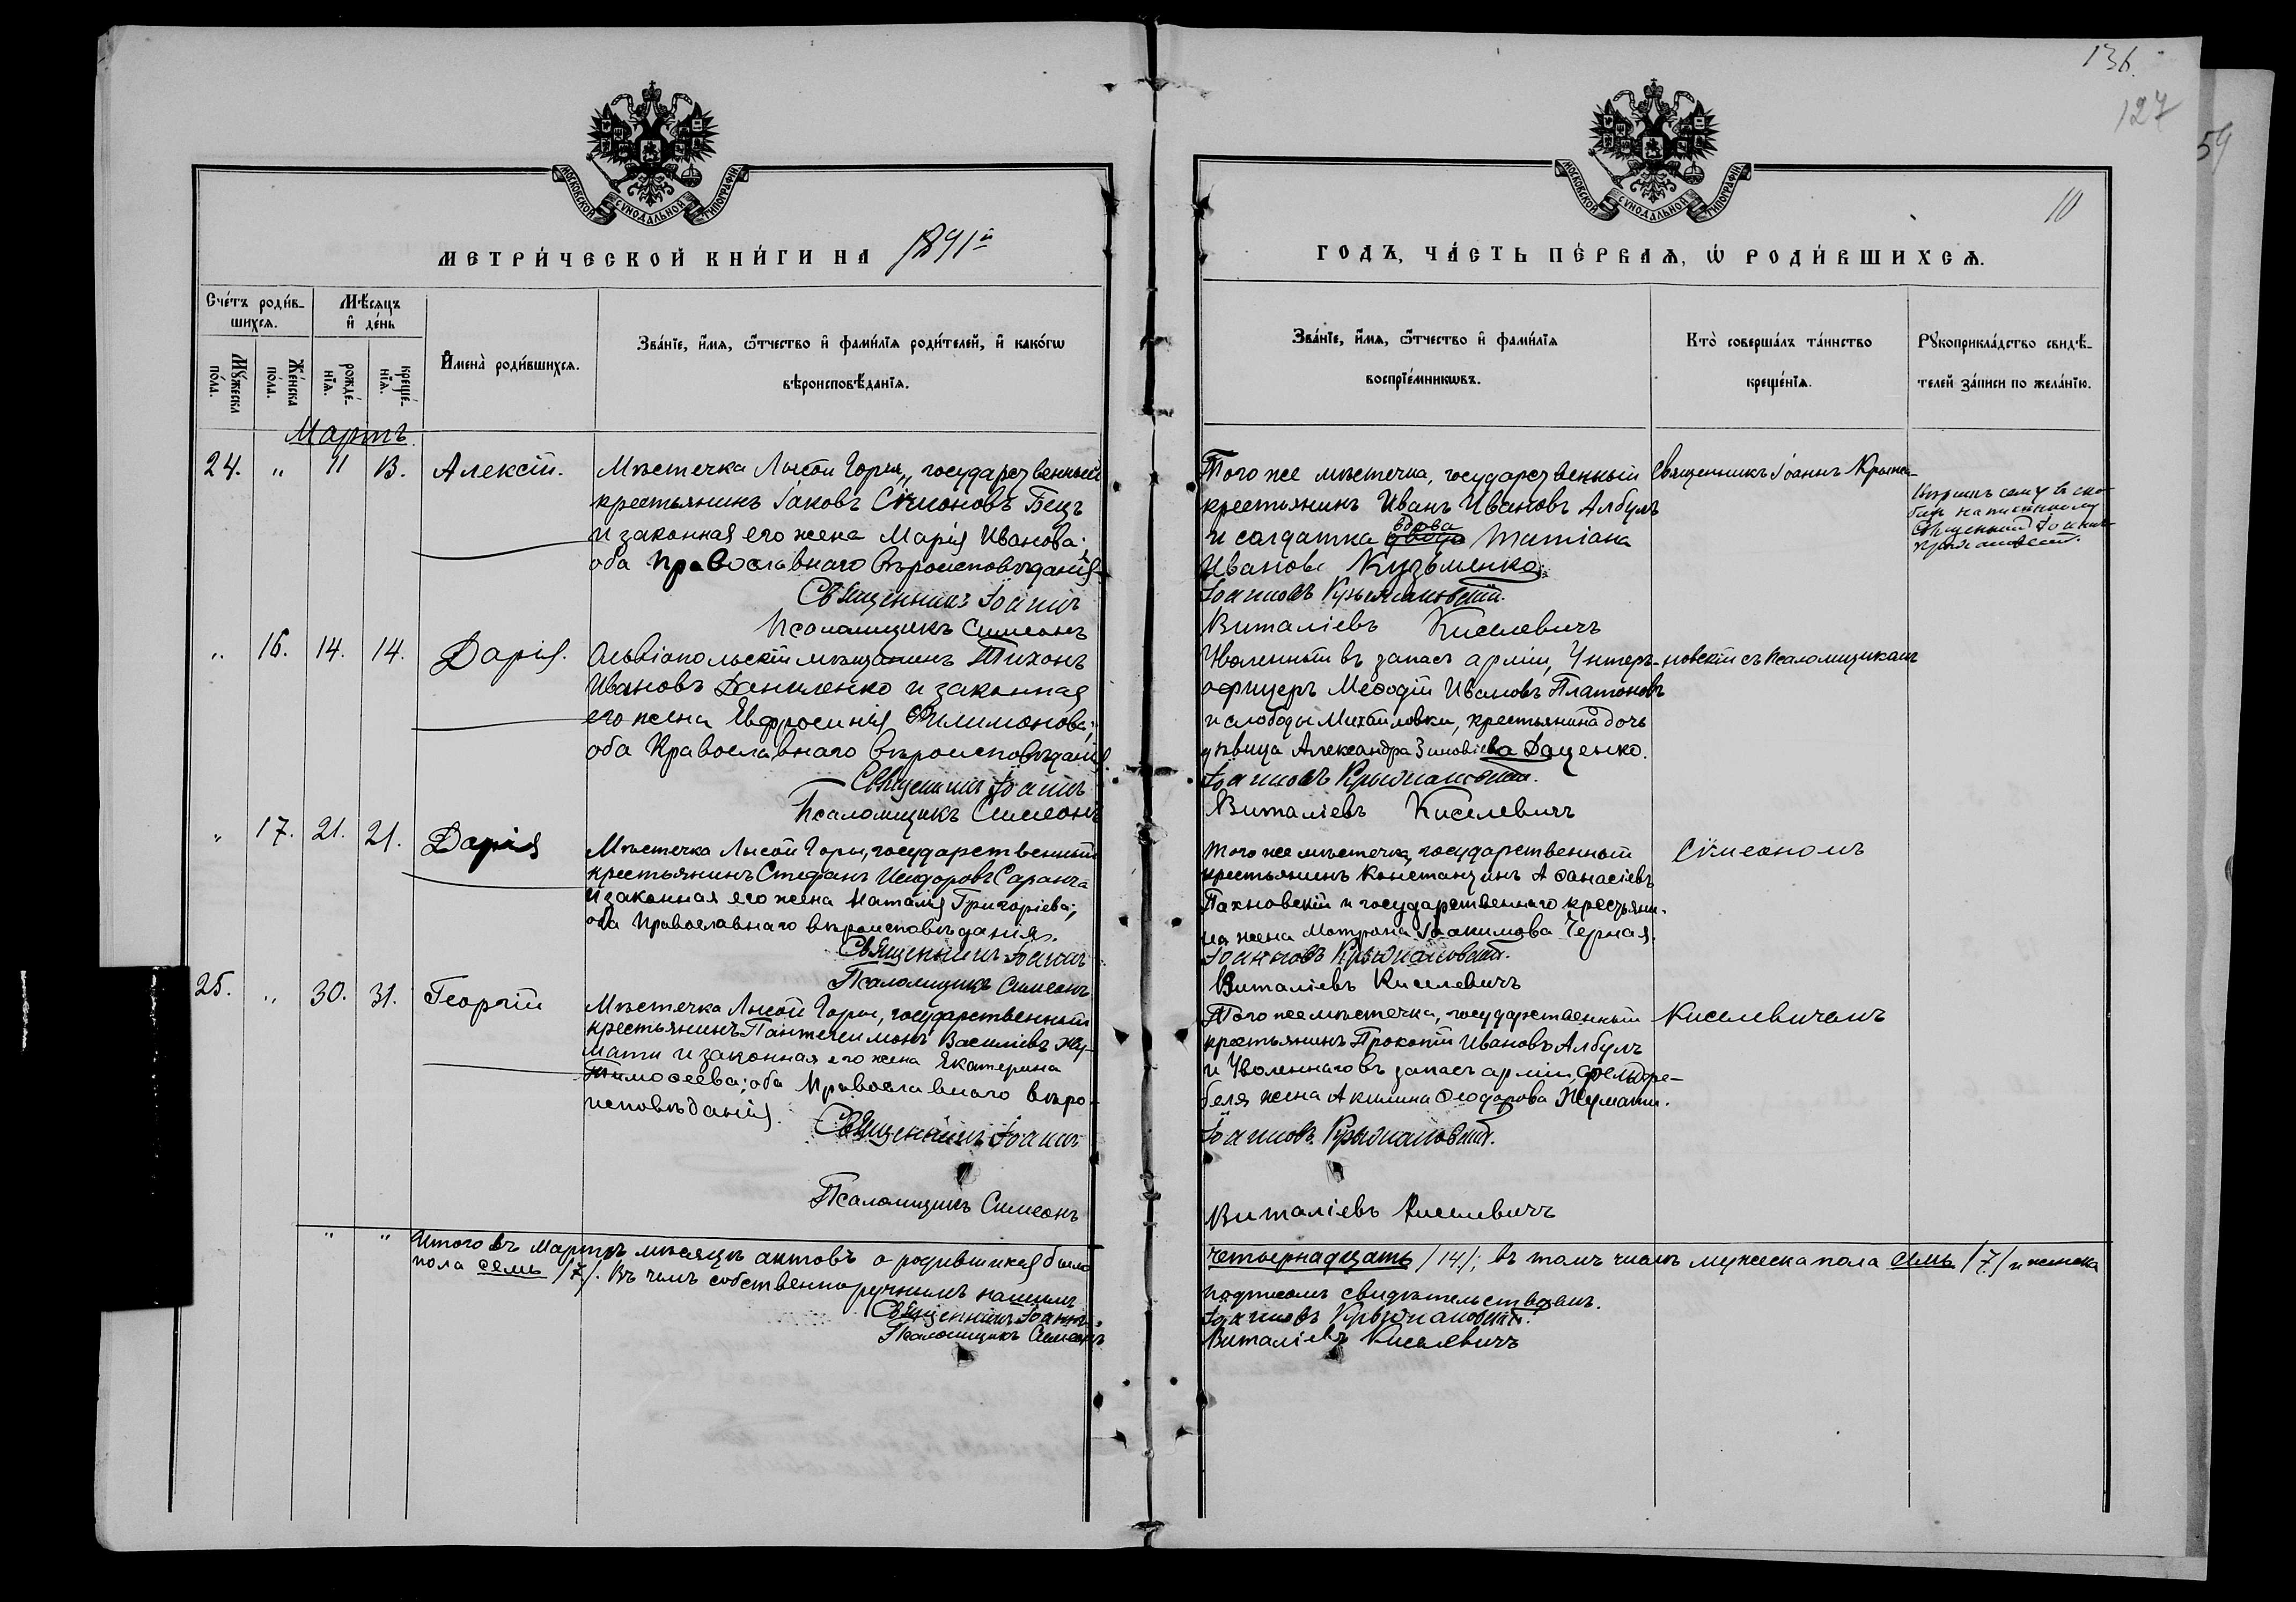 136.
127
59
10
МОСКОВСКОЙ СѴНОДАЛЬНОЙ ТИПОГРАФІИ
МОСКОВСКОЙ СѴНОДАЛЬНОЙ ТИПОГРАФІИ
МЕТРИ́ЧЕСКОЙ КНИ́ГИ НА 1891й
ГОДЪ, ЧА́СТЬ ПЕ́РВАѦ, Ѡ҆ РОДИ́ВШИХСѦ.
Сче́тъ роди́в-
шихсѧ.
Мѣ́сѧцъ
и҆ де́нь
Мꙋ́жеска
по́ла.
Же́нска
по́ла.
рожде́-
нїѧ.
креще́-
нїѧ.
И҆мена̀ роди́вшихсѧ.
Зва́нїе, и҆́мѧ, ѻ҆́тчество и҆ фами́лїѧ роди́телей, и҆ како́гѡ
вѣроисповѣ́данїѧ.
Зва́нїе, и҆́мѧ, ѻ҆́тчество и҆ фами́лїѧ
воспрїе́мникѡвъ.
Кто̀ соверша́лъ та́инство
креще́нїѧ.
Рꙋкоприкла́дство свидѣ́-
телей за́писи по жела́нїю.
Мартъ
24. " 11 13. Алексій.
Мѣстечка Лысой Горы, государственный
крестьянинъ Іаковъ Сѵмоновъ Бецъ
и законная его жена Марія Иванова;
оба Православнаго вѣроисповѣданія
Священникъ Іоаннъ
Псаломщикъ Симеонъ
Того же мѣстечка, государственный
крестьянинъ Иванъ Ивановъ Албулъ
вдова
и солдатка Татіана
Иванова Кузьменко.
Іоанновъ Крыжановскій.
Виталіевъ Киселевичъ
Священникъ Іоаннъ Крыжа-
написанному
Священникъ Іоаннъ
" 16. 14. 14. Дарія.
Ольвіопольскій мѣщанинъ Тихонъ
Ивановъ Даниленко и законная
его жена Евфросинія Филимонова;
оба Православнаго вѣроисповѣданія
Священникъ Іоаннъ
Псаломщикъ Симеонъ
Уволенный въ запасъ арміи, Унтеръ-
офицеръ Меѳодій Ивановъ Платоновъ
и слободы Михайловки, крестьянина дочь
дѣвица Александра Зиновіева Даценко.
Іоанновъ Крыжановскій.
Виталіевъ Киселевичъ
новскій съ Псаломщикомъ
" 17. 21. 21. Дарія
Мѣстечка Лысой Горы, государственный
крестьянинъ Стефанъ Исидоровъ Саранча
и законная его жена Наталія Григоріева;
оба Православнаго вѣроисповѣданія.
Священникъ Іоаннъ
Псаломщикъ Симеонъ
Того же мѣстечка, государственный
крестьянинъ Константинъ Аѳанасіевъ
Пахновскій и государственнаго крестьяни-
на жена Мотрона Іоакимова Черная.
Іоанновъ Крыжановскій.
Виталіевъ Киселевичъ
Сѵмеономъ
25. " 30. 31. Георгій
Мѣстечка Лысой Горы, государственный
крестьянинъ Пантелеимонъ Василіевъ Жу-
мати и законная его жена Екатерина
Тимоѳеева; оба Православнаго вѣро-
исповѣданія.
Священникъ Іоаннъ
Псаломщикъ Симеонъ
Того же мѣстечка, государственный
крестьянинъ Прокопій Ивановъ Албулъ
и Уволеннаго въ запасъ арміи, фельдфе-
беля жена Акилина Ѳеодорова Жумати.
Іоанновъ Крыжановскій.
Виталіевъ Киселевичъ
Киселевичемъ
" " Итого въ Мартѣ мѣсяцѣ актовъ о родившихся было
четырнадцать /14/; въ томъ числѣ мужеска пола семь /7/ и женска
пола семь /7/. Въ чемъ собственноручнымъ нашимъ
подписомъ свидѣтельствуемъ.
Священникъ Іоаннъ
Іоанновъ Крыжановскій.
Псаломщикъ Симеонъ
Виталіевъ Киселевичъ